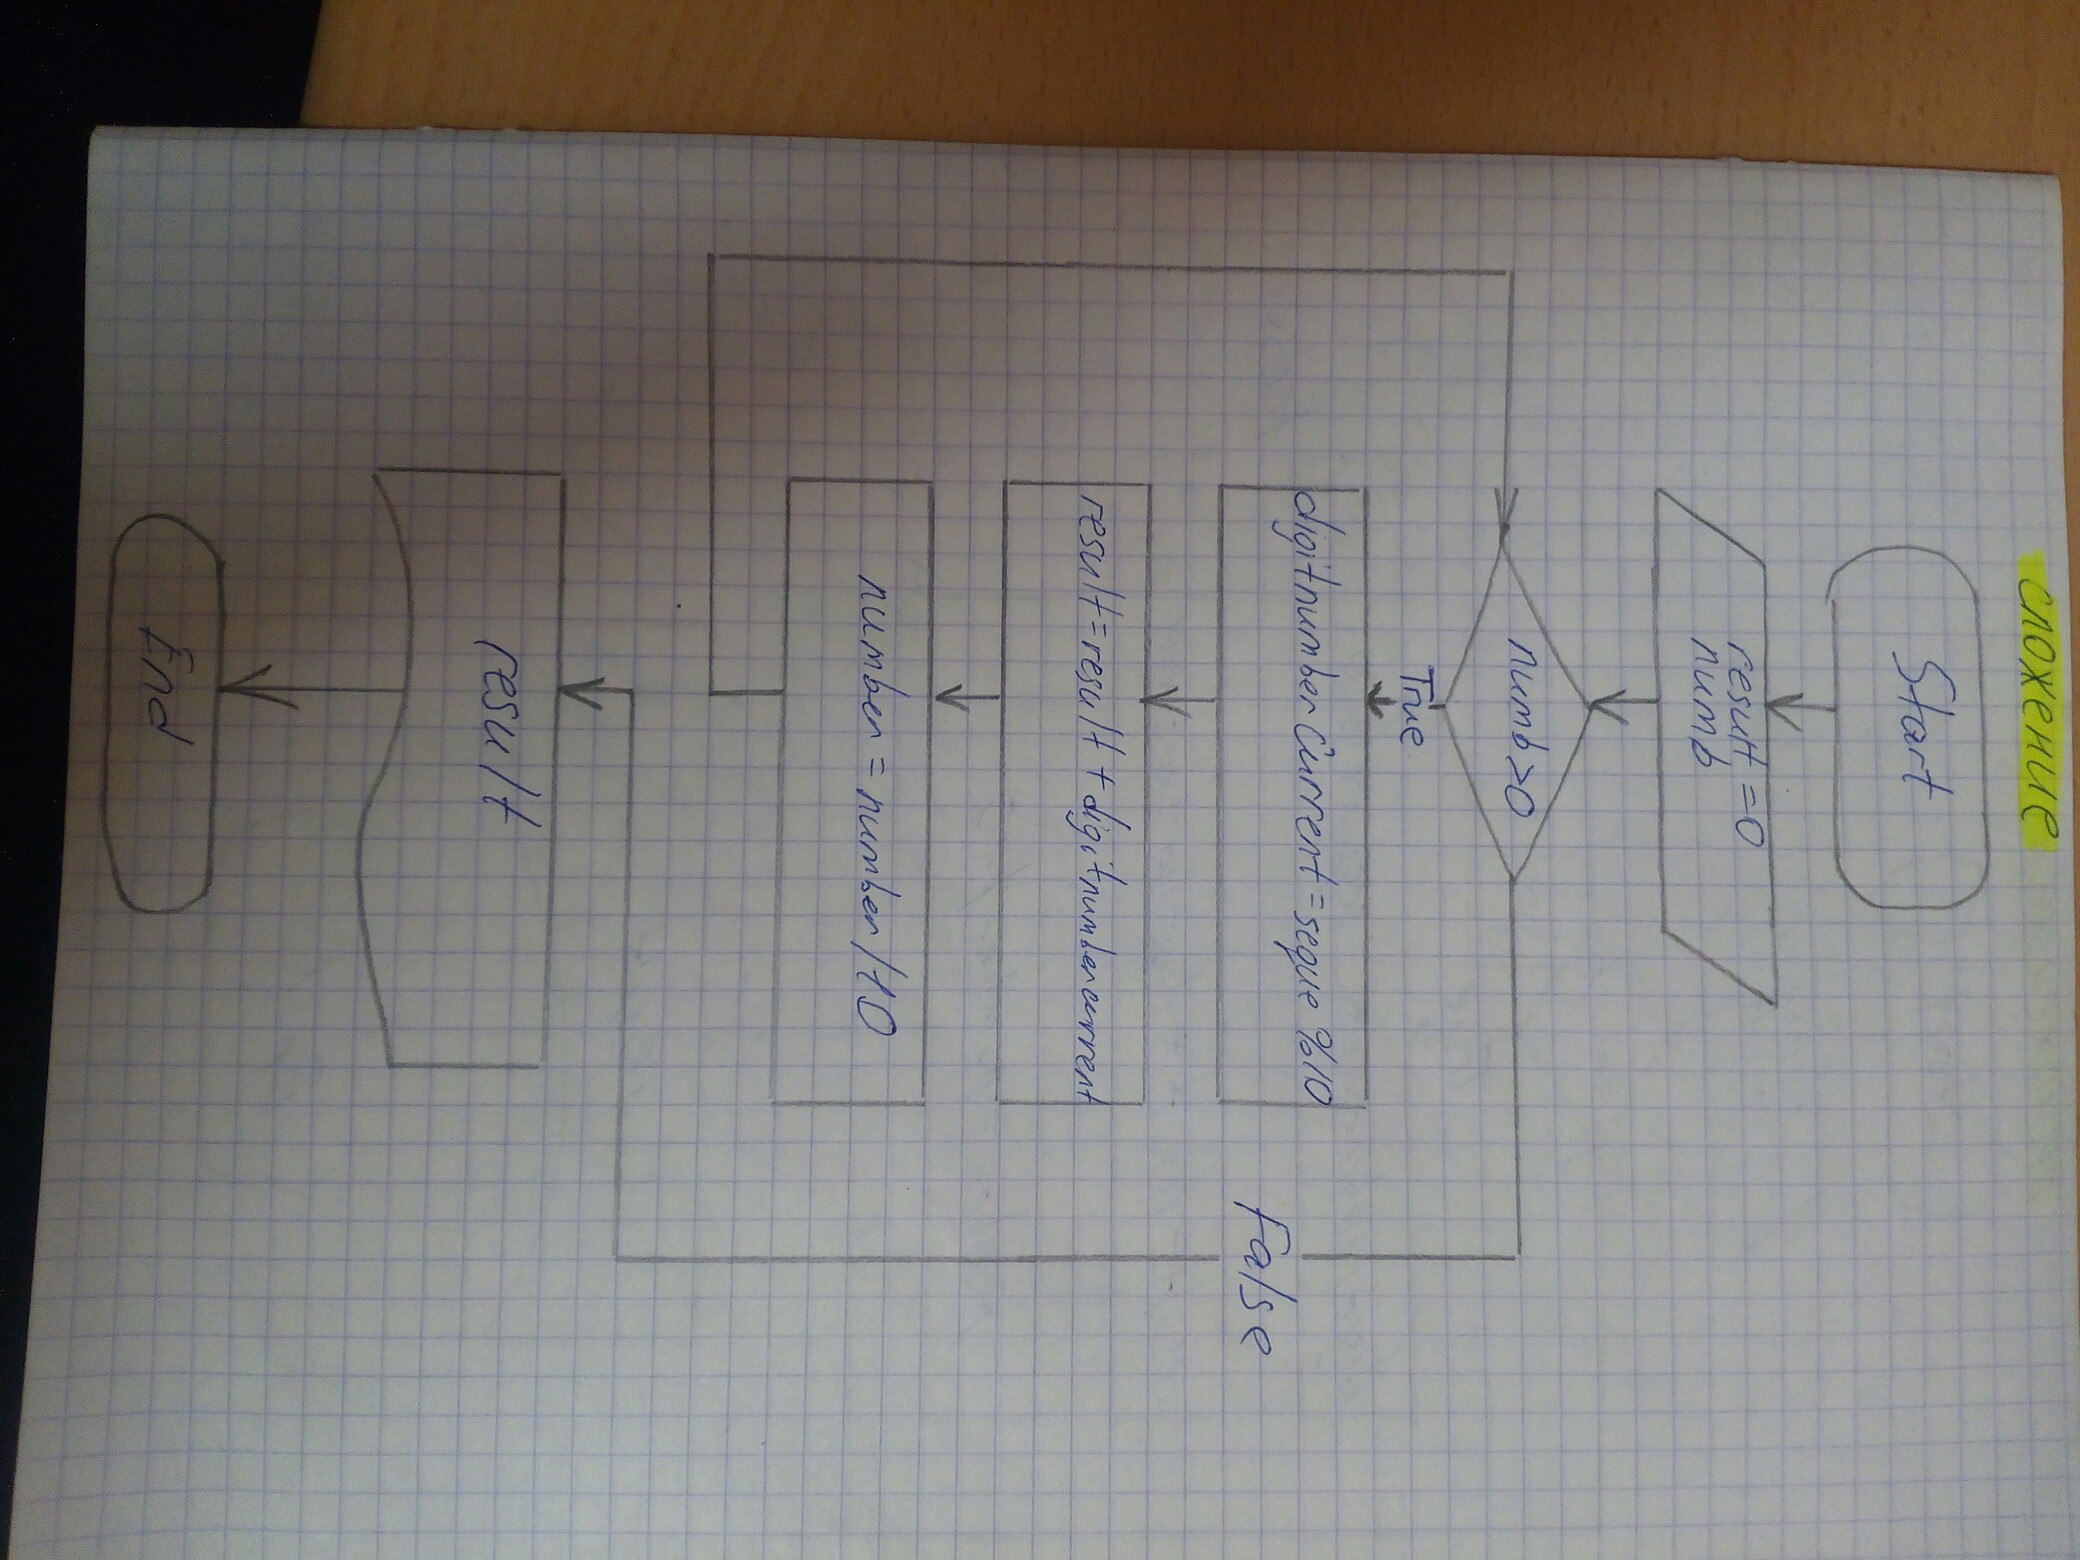 сложение
Start
result = 0
numb
numb>0
True
digitnumber current = seque % 10
False
result = result + digitnumbercurrent
number = number / 10
result
End